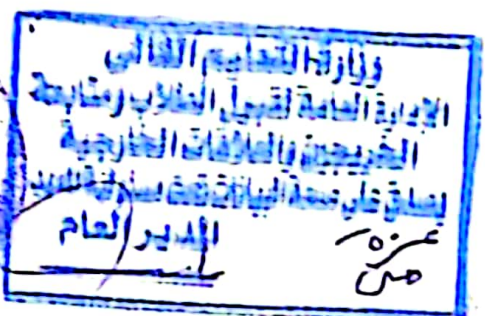 وزارة التعليم العالي
الإدارة العامة لقبول الطلاب ومتابعة
الخريجين والعلاقات الخارجية
على صحة البيانات
المدير العام